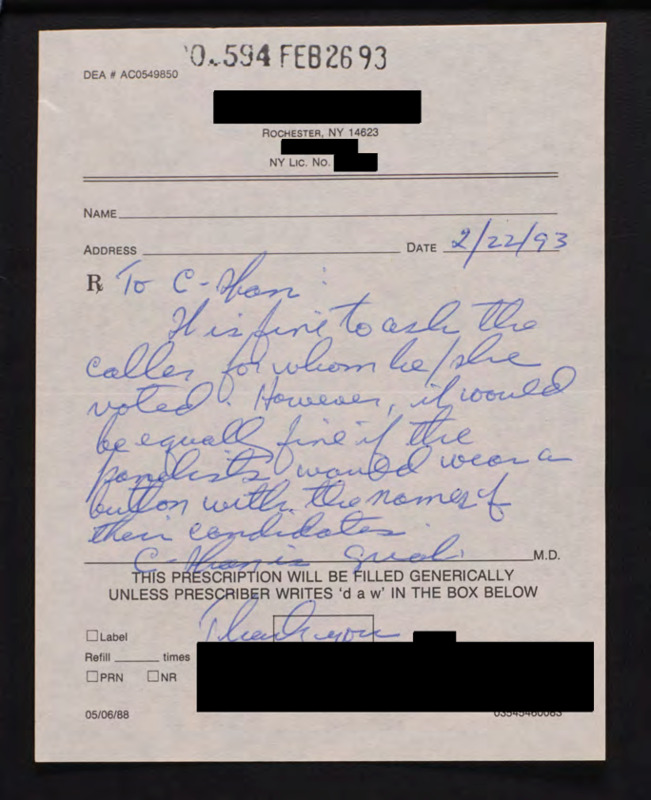 0.594 FEB 26 93
DEA # AC0549850
ROCHESTER, NY 14623
NY LIC. NO.
NAME
ADDRESS DATE 2/22/93
℞ To C-Span:
It is fine to ask the
caller for whom he/she
voted. However, it would
be equally fine if the
panelists would wear a
button with the names of
their candidates.
C-Span is great. M.D.
THIS PRESCRIPTION WILL BE FILLED GENERICALLY
UNLESS PRESCRIBER WRITES 'd a w' IN THE BOX BELOW
Thank you
☐ Label
Refill times
☐ PRN ☐ NR
05/06/88 03545460083